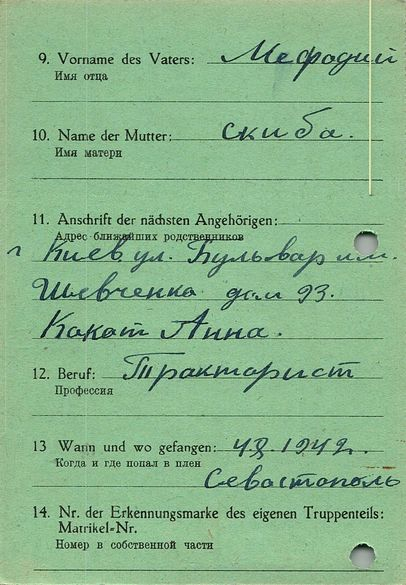 9. Vorname des Vaters: Мефодий
Имя отца
10. Name der Mutter: скиба.
Имя матери
11. Anschrift der nächsten Angehörigen:
Адрес ближайших родственников
г Киев ул. Бульвар им.
Шевченка дом 93.
Кокот Анна.
12. Beruf: Тракторист
Профессия
13 Wann und wo gefangen: 1942г.
Когда и где попал в плен
Севастополь
14. Nr. der Erkennungsmarke des eigenen Truppenteils:
Matrikel-Nr.
Номер в собственной части